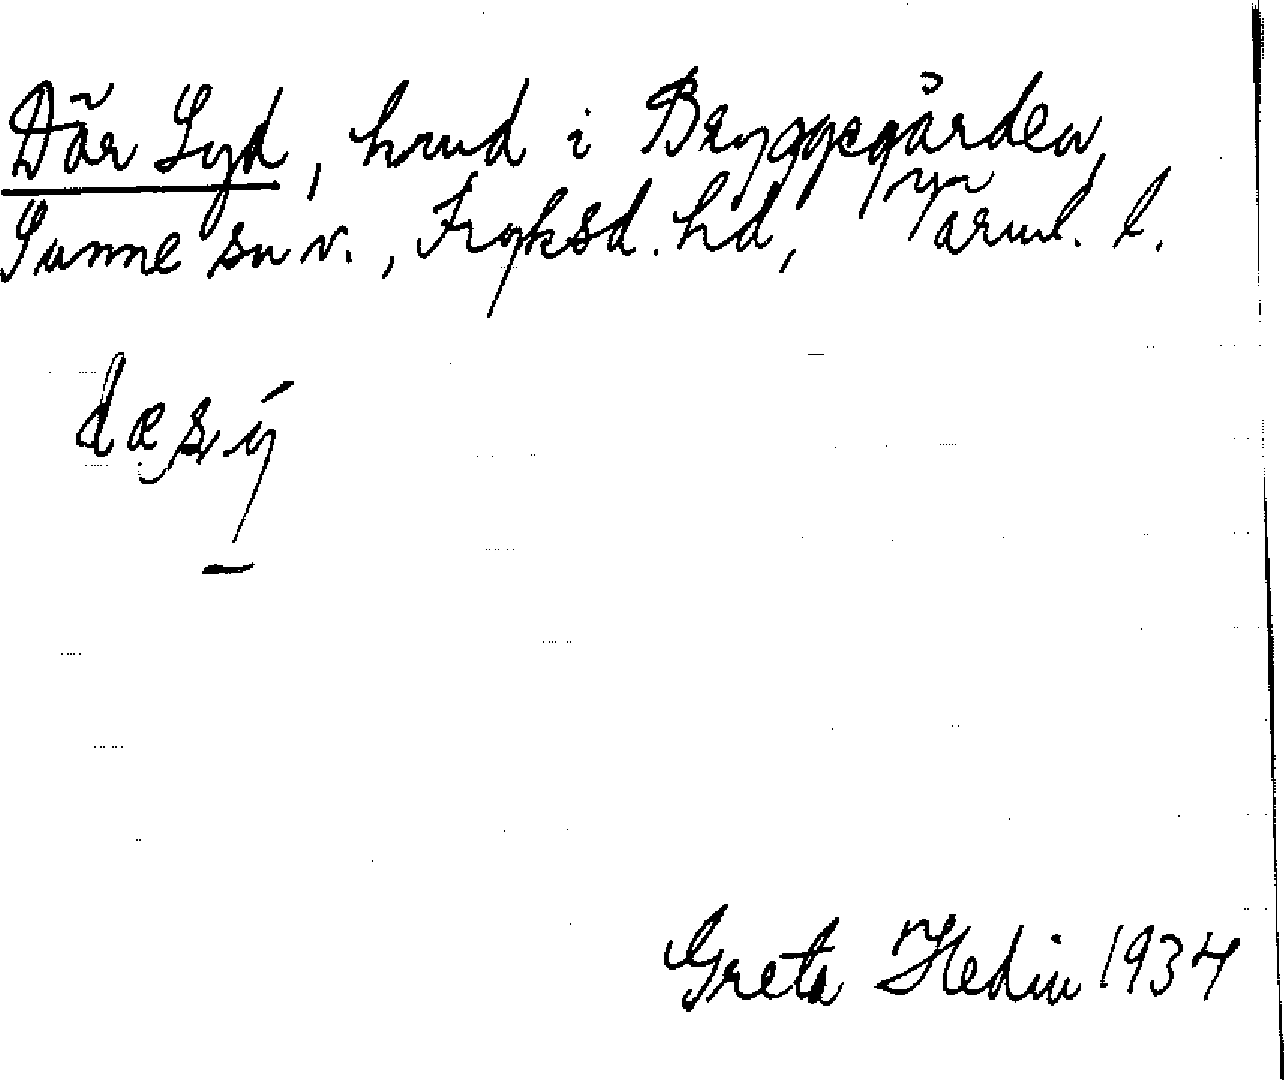 Där Syd, hmd i Bryggegården,
Sunne sn v., Fryksd. hd, Värml. l.
dæsý
Greta Hedin 1934